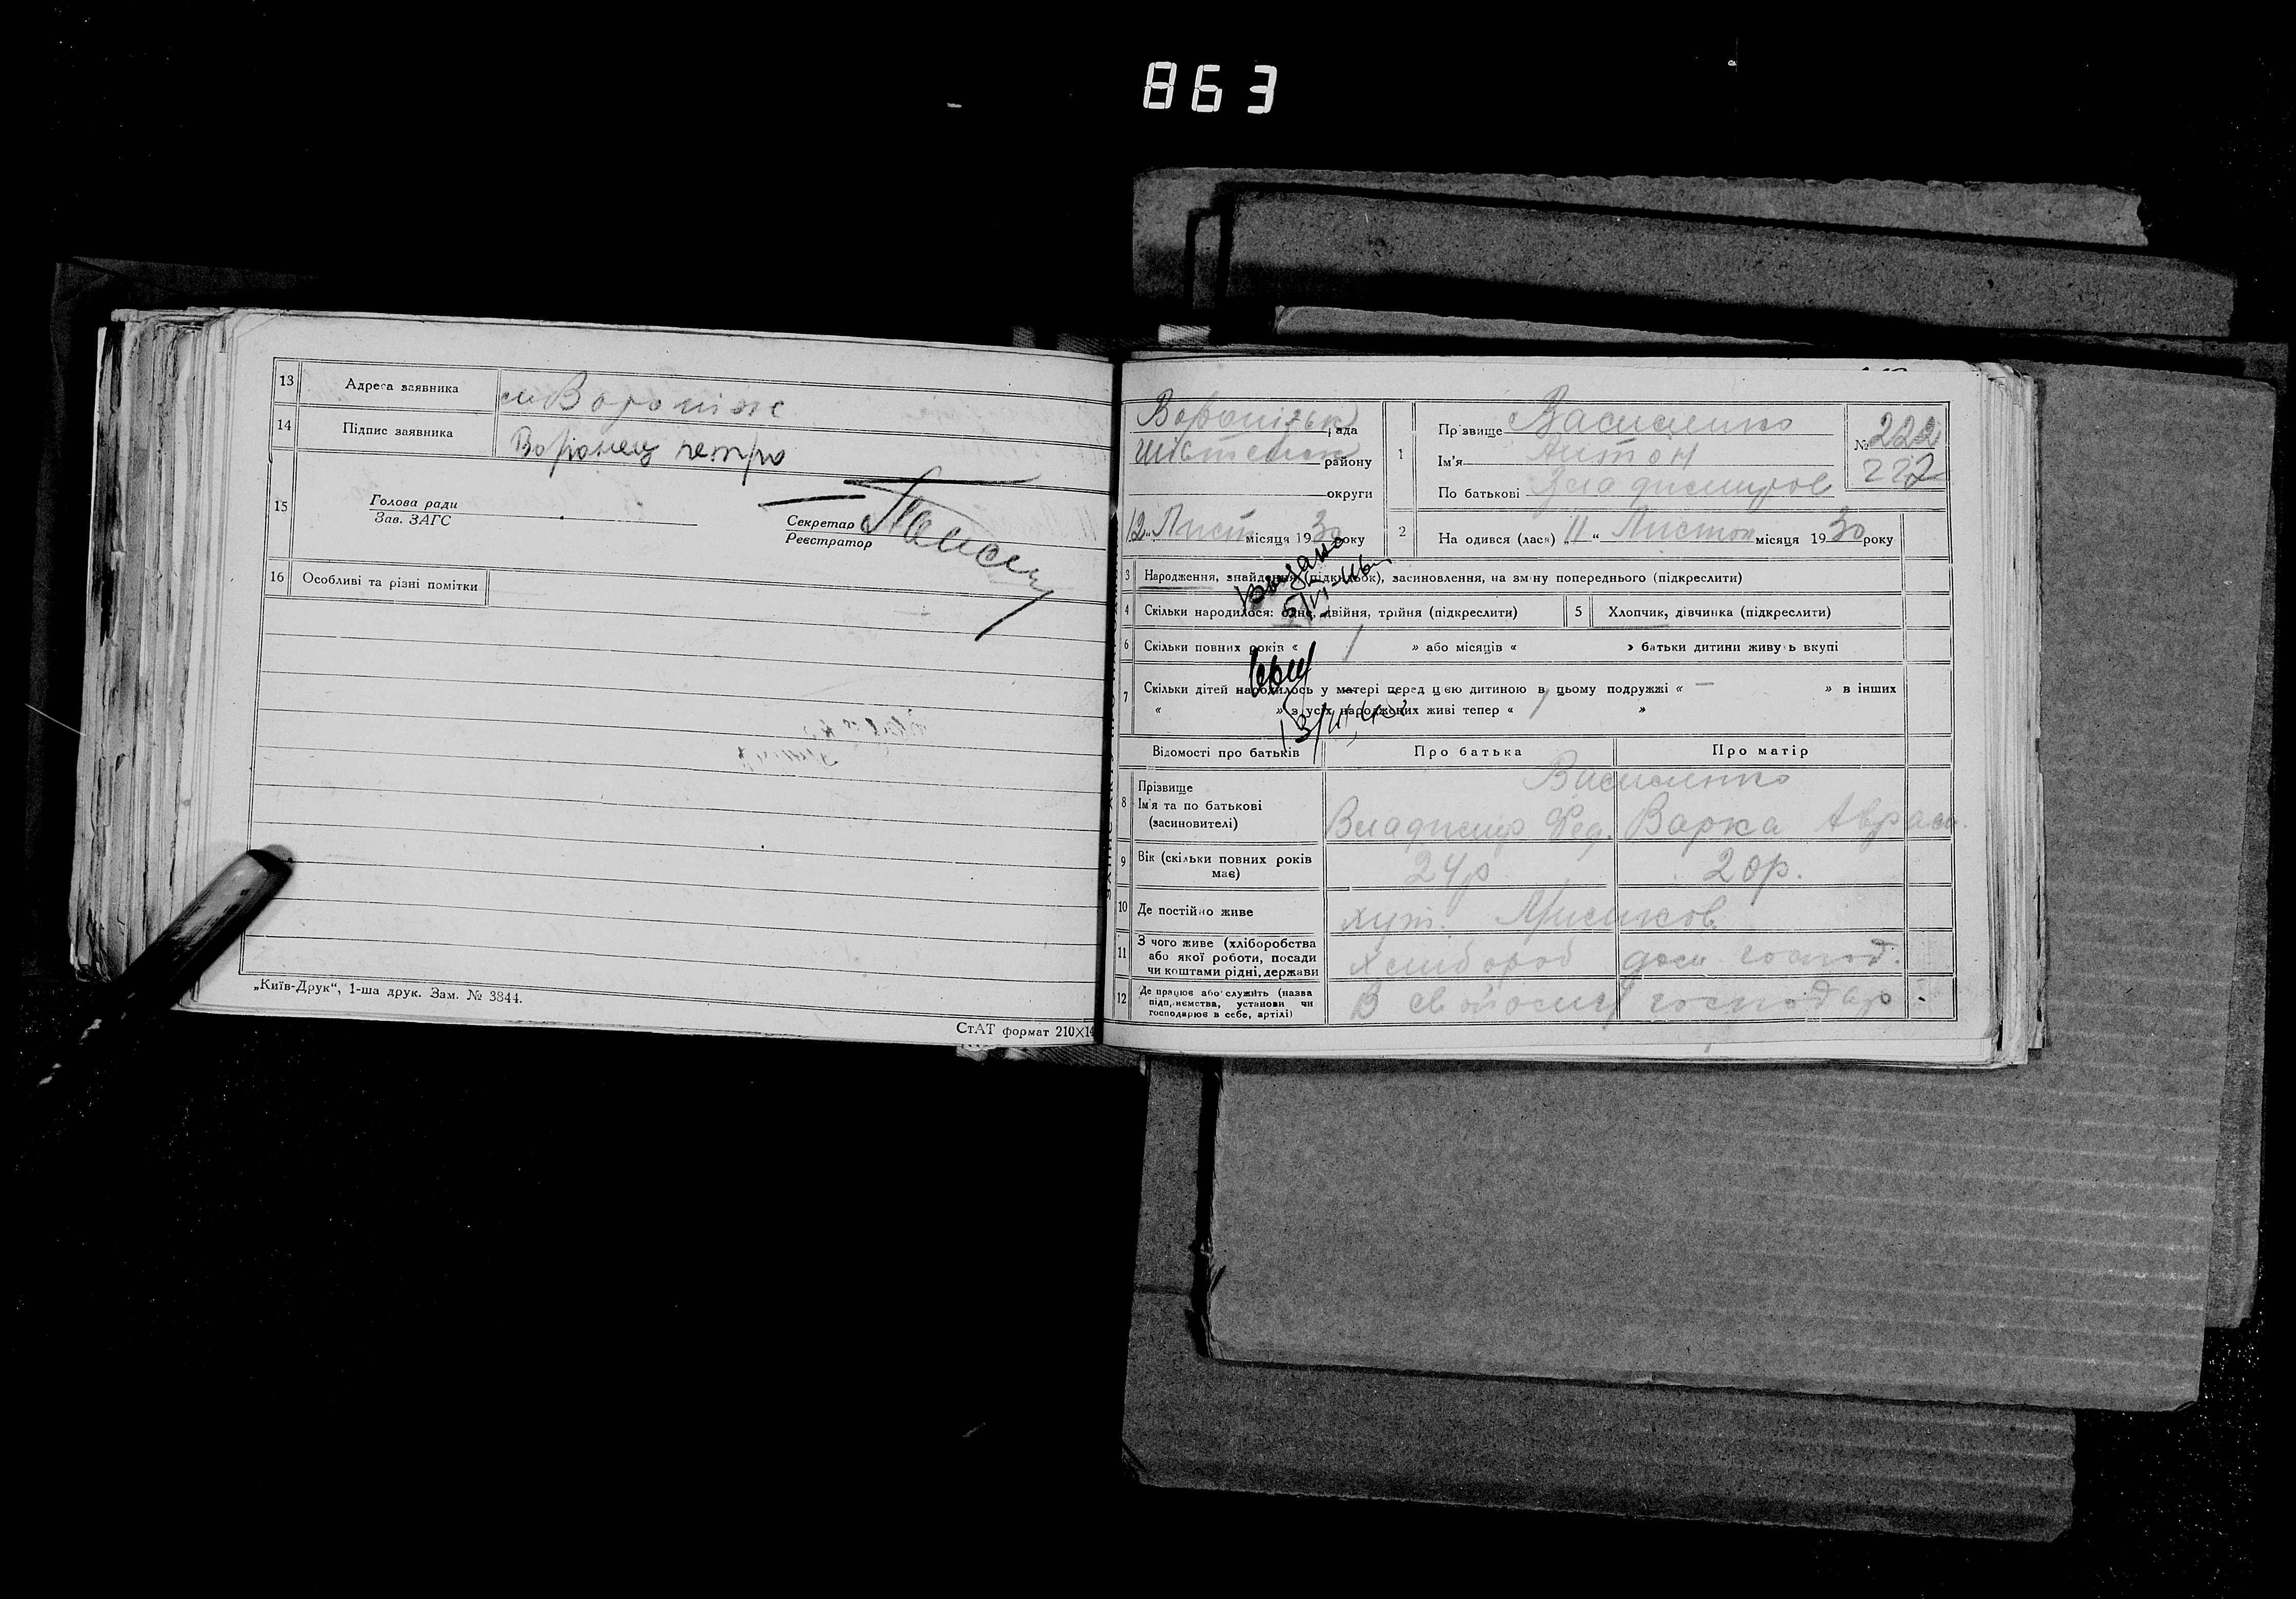 863
13 Адреса заявника м Вороніж
14 Підпис заявника Воронец петро
15 Голова ради
Зав. ЗАГС
Секретар
Реєстратор
16 Особливі та різні помітки
„Київ-Друк“, 1-ша друк. Зам. № 3844.
СтАТ формат 210×14
Вороніжськ рада
району
округи
12 „ Лист місяця 1930 року
1 Прізвище Василенко
Ім'я Антон
По батькові Владимиров
№ 222
222
2 На одився (лася) „ 11 “ Листоп місяця 1930 року
3 Народження, знайдення (підкидьок), засиновлення, на зміну попереднього (підкреслити)
4 Скільки народилося: одне, двійня, трійня (підкреслити)
5 Хлопчик, дівчинка (підкреслити)
Выдано
6 Скільки повних років « 1 » або місяців « » батьки дитини живуть вкупі
7 Скільки дітей народилось у матері перед цією дитиною в цьому подружжі « – » в інших
« » з усіх народжених живі тепер « 1 »
Відомості про батьків Про батька Про матір
8 Прізвище Василенко
Ім'я та по батькові
(засиновителі) Владимир Фед. Варка Аврам.
9 Вік (скільки повних років
має) 24р 20р.
10 Де постійно живе хут.
11 З чого живе (хліборобства
або якої роботи, посади
чи коштами рідні, держави хлибороб дом господ.
12 Де працює або служить (назва
підприємства, установи чи
господарює в себе, артілі) В свойому